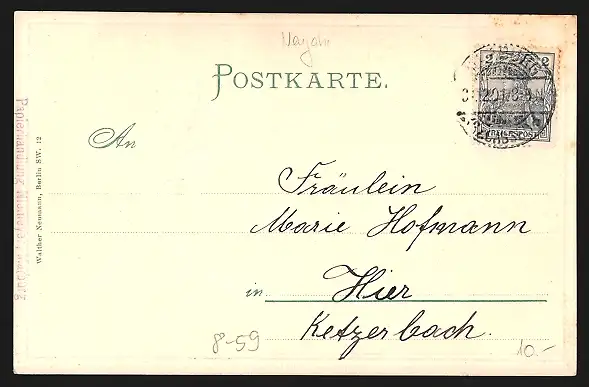 POSTKARTE.
An
Fräulein
Marie Hofmann
in Hier
Ketzerbach.
8-59
10.-
Walther Nemann, Berlin SW. 12
Papierhandlung
2
REICHSPOST